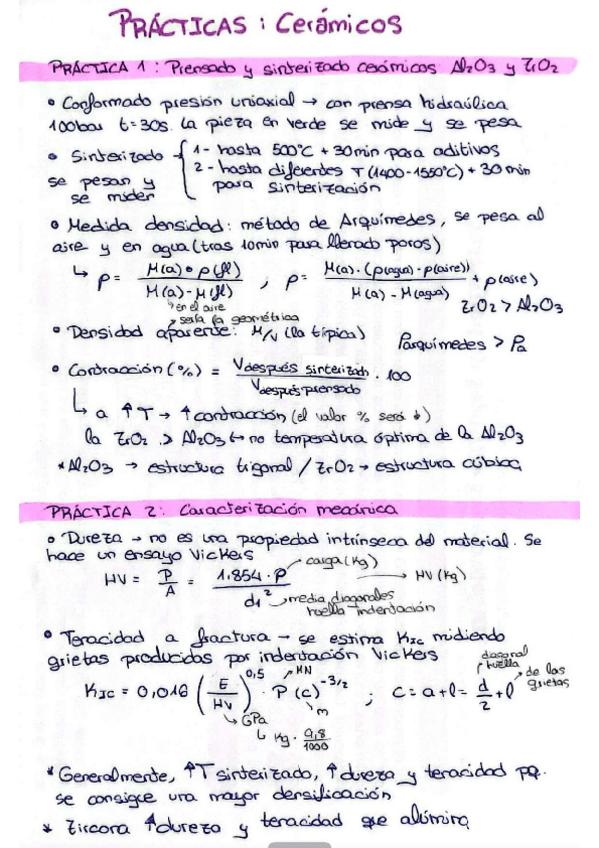 PRÁCTICAS: Cerámicos
PRÁCTICA 1: Prensado y sinterizado cerámicos Al2O3 y ZrO2
• Conformado presión uniaxial → con prensa hidráulica
100bar t=30s. La pieza en verde se mide y se pesa
• Sinterizado { 1- hasta 500°C + 30min para aditivos
se pesan y 2- hasta diferentes T (1400-1550°C) + 30min
se miden para sinterización
• Medida densidad: método de Arquímedes, se pesa al
aire y en agua (tras 10min para llenado poros)
↳ ρ = M(a) • ρ(fl) / M(a) - M(fl) ; ρ = M(a) · (ρ(agua) - ρ(aire)) / M(a) - M(agua) + ρ(aire)
→ en el aire
ZrO2 > Al2O3
→ sería la geométrica
• Densidad aparente: M/V (la típica) ρarquímedes > ρa
• Contracción (%) = Vdespués sinterizado / Vdespués prensado · 100
↳ a ↑T → ↑contracción (el valor % será ↓)
la ZrO2 > Al2O3 ↔ no temperatura óptima de la Al2O3
*Al2O3 → estructura trigonal / ZrO2 → estructura cúbica
PRÁCTICA 2: Caracterización mecánica
• Dureza → no es una propiedad intrínseca del material. Se
hace un ensayo Vickers
HV = P/A = 1.854 · P / d1² → HV (Kg)
→ carga (Kg)
→ media diagonales
huella indentación
• Tenacidad a fractura → se estima KIC midiendo
grietas producidas por indentación Vickers
KIC = 0,016 (E/HV)^0,5 · P (c)^-3/2 ; c = a + l = d/2 + l
→ MN
→ m
→ GPa
↳ Kg · 9,8/1000
diagonal
huella
→ de las
grietas
* Generalmente, ↑T sinterizado, ↑dureza y tenacidad pq.
se consigue una mayor densificación
* Zircona ↑dureza y tenacidad que alúmina